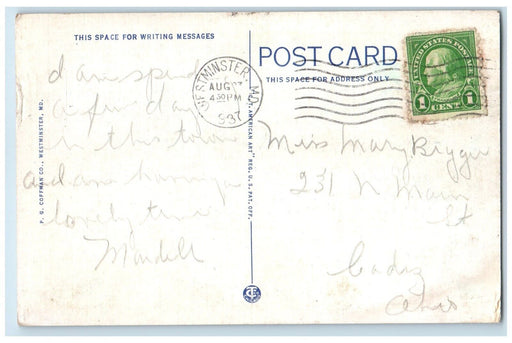 THIS SPACE FOR WRITING MESSAGES
POST CARD
THIS SPACE FOR ADDRESS ONLY
UNITED STATES POSTAGE
1 CENT 1
WESTMINSTER, MD.
AUG
4 30 PM
1937
I am spend
a few days
in this town
and am having a
lovely time
P. G. COFFMAN CO., WESTMINSTER, MD.
"AMERICAN ART" REG. U. S. PAT. OFF.
Miss Mary
231 N Main
St
Cadiz
Ohio